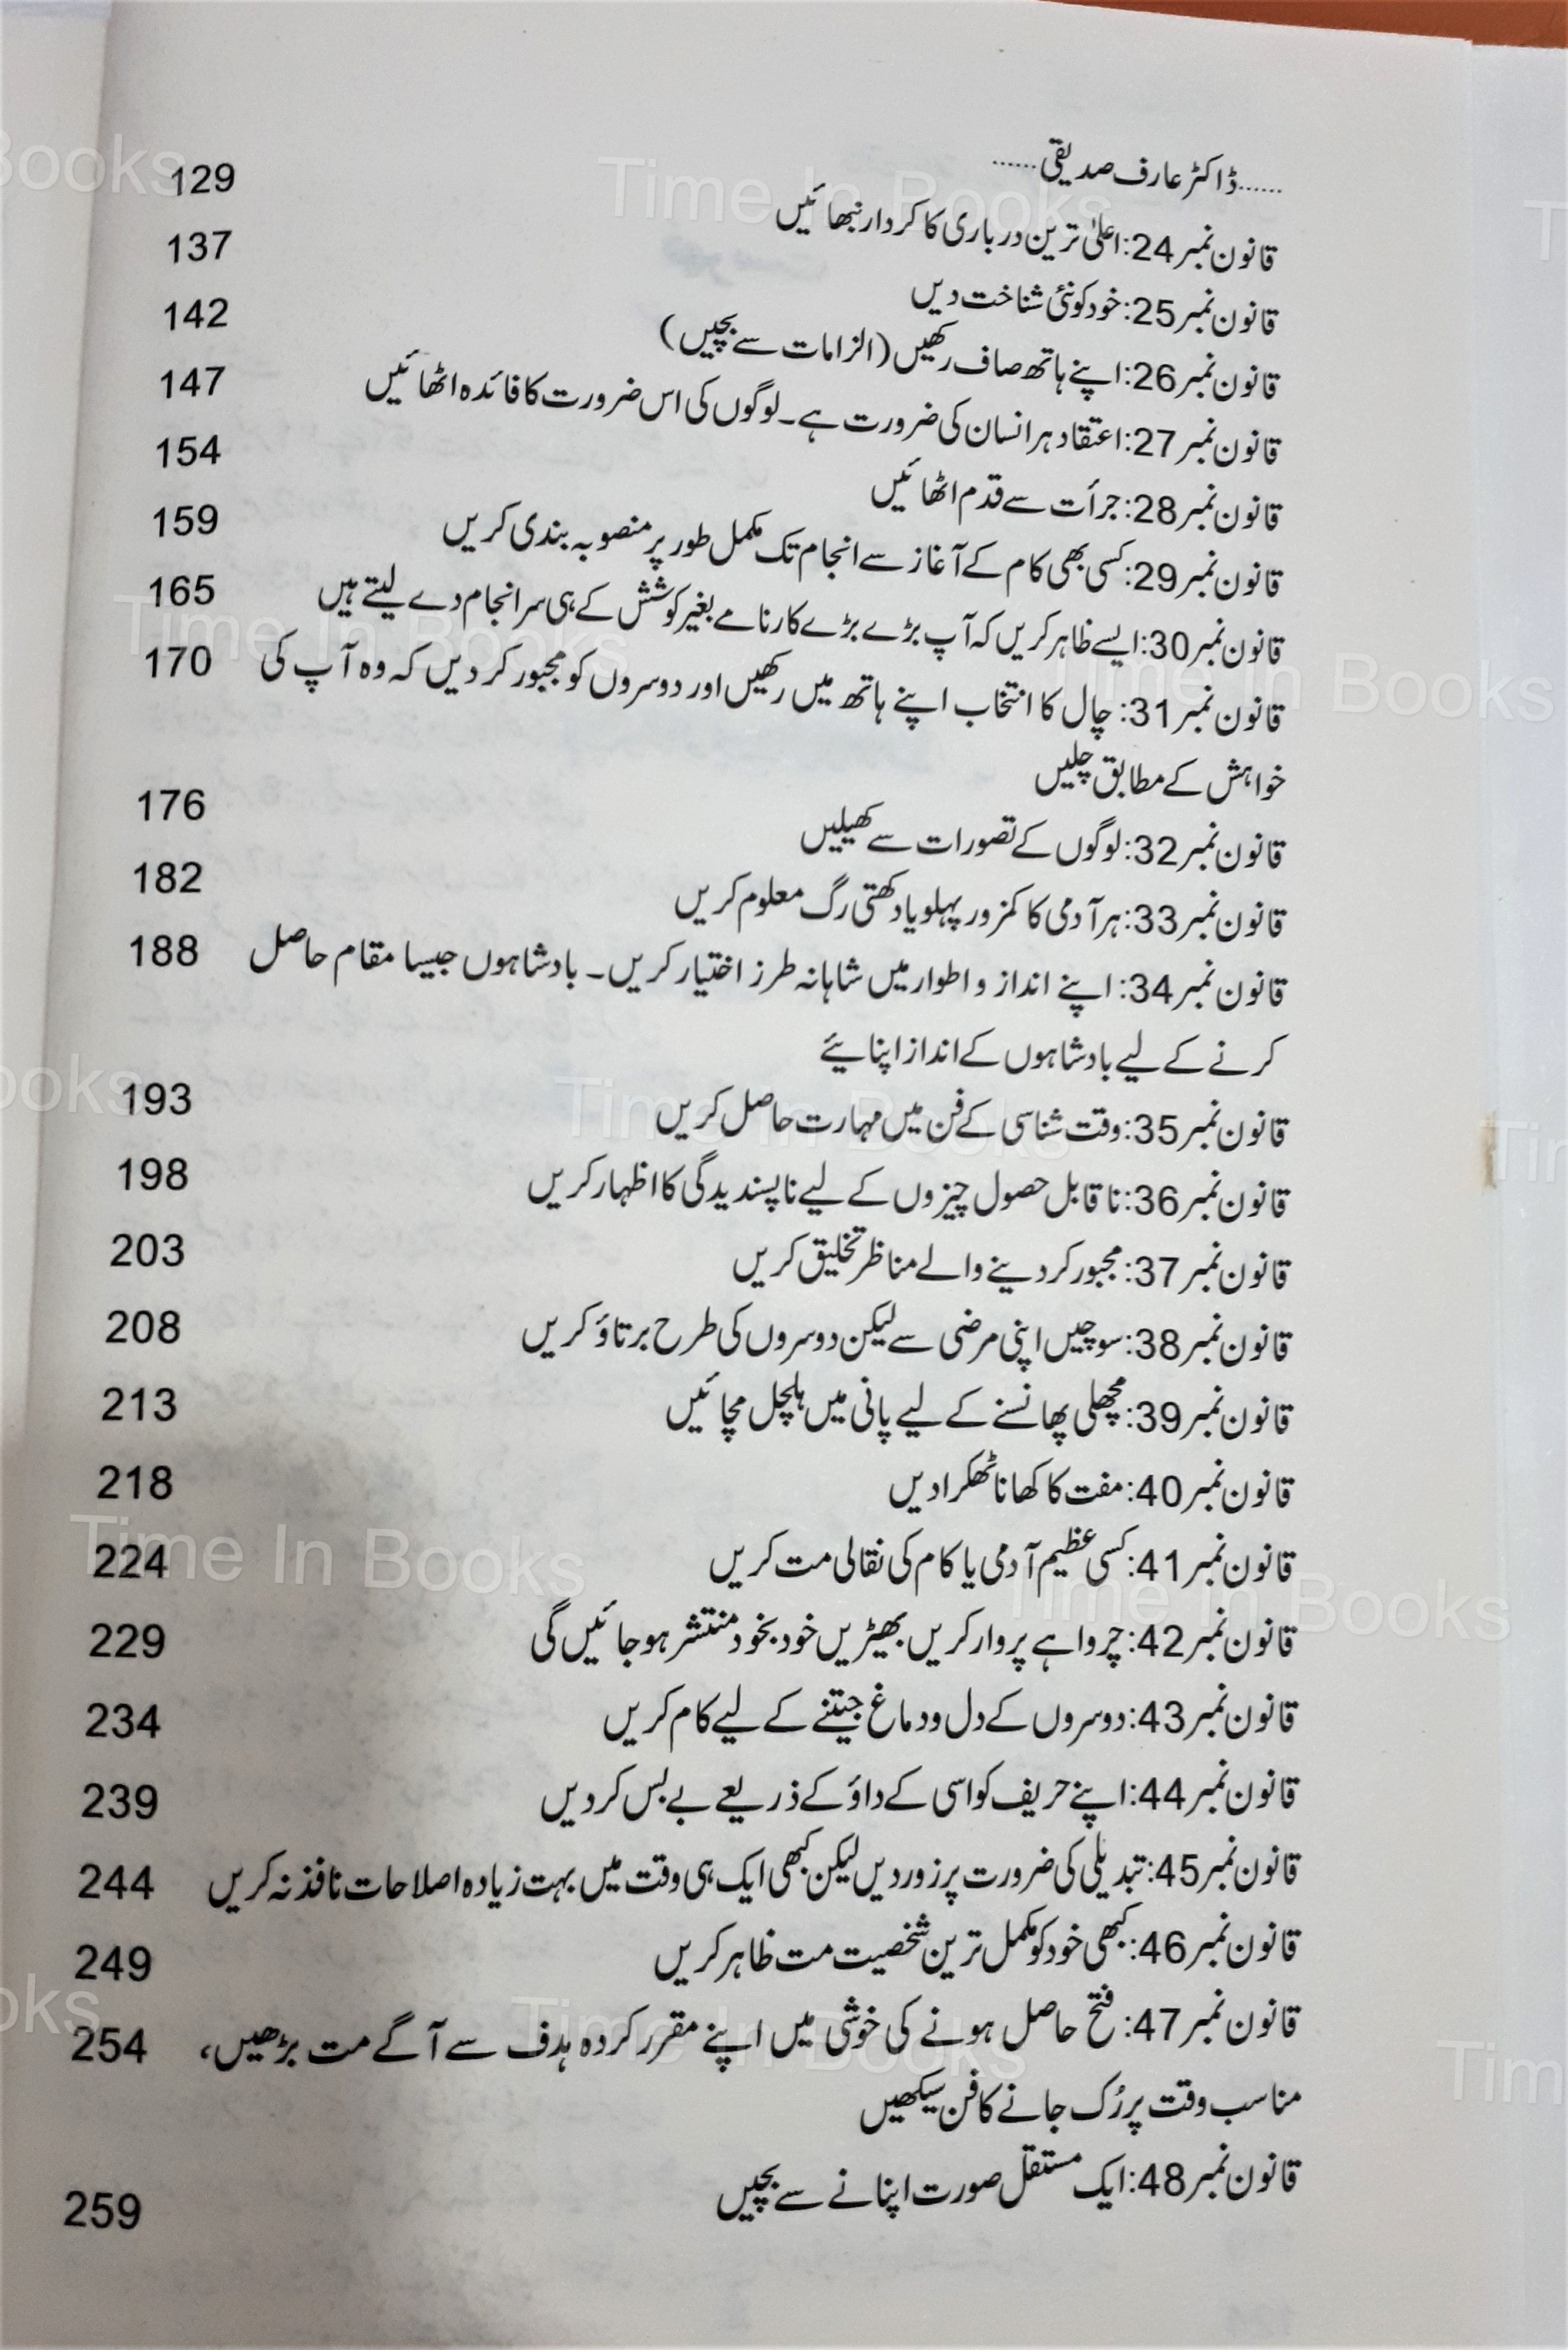 ......ڈاکٹر عارف صدیقی......
قانون نمبر 24: اعلیٰ ترین درباری کا کردار نبھائیں 129
قانون نمبر 25: خود کو نئی شناخت دیں 137
قانون نمبر 26: اپنے ہاتھ صاف رکھیں (الزامات سے بچیں) 142
قانون نمبر 27: اعتقاد ہر انسان کی ضرورت ہے۔ لوگوں کی اس ضرورت کا فائدہ اٹھائیں 147
قانون نمبر 28: جرأت سے قدم اٹھائیں 154
قانون نمبر 29: کسی بھی کام کے آغاز سے انجام تک مکمل طور پر منصوبہ بندی کریں 159
قانون نمبر 30: ایسے ظاہر کریں کہ آپ بڑے بڑے کارنامے بغیر کوشش کے ہی سرانجام دے لیتے ہیں 165
قانون نمبر 31: چال کا انتخاب اپنے ہاتھ میں رکھیں اور دوسروں کو مجبور کر دیں کہ وہ آپ کی 170
خواہش کے مطابق چلیں
قانون نمبر 32: لوگوں کے تصورات سے کھیلیں 176
قانون نمبر 33: ہر آدمی کا کمزور پہلو یا دکھتی رگ معلوم کریں 182
قانون نمبر 34: اپنے انداز و اطوار میں شاہانہ طرز اختیار کریں۔ بادشاہوں جیسا مقام حاصل 188
کرنے کے لیے بادشاہوں کے انداز اپنایئے
قانون نمبر 35: وقت شناسی کے فن میں مہارت حاصل کریں 193
قانون نمبر 36: ناقابل حصول چیزوں کے لیے ناپسندیدگی کا اظہار کریں 198
قانون نمبر 37: مجبور کر دینے والے مناظر تخلیق کریں 203
قانون نمبر 38: سوچیں اپنی مرضی سے لیکن دوسروں کی طرح برتاؤ کریں 208
قانون نمبر 39: مچھلی پھانسنے کے لیے پانی میں ہلچل مچائیں 213
قانون نمبر 40: مفت کا کھانا ٹھکرا دیں 218
قانون نمبر 41: کسی عظیم آدمی یا کام کی نقالی مت کریں 224
قانون نمبر 42: چرواہے پر وار کریں بھیڑیں خود بخود منتشر ہو جائیں گی 229
قانون نمبر 43: دوسروں کے دل و دماغ جیتنے کے لیے کام کریں 234
قانون نمبر 44: اپنے حریف کو اسی کے داؤ کے ذریعے بے بس کر دیں 239
قانون نمبر 45: تبدیلی کی ضرورت پر زور دیں لیکن کبھی ایک ہی وقت میں بہت زیادہ اصلاحات نافذ نہ کریں 244
قانون نمبر 46: کبھی خود کو مکمل ترین شخصیت مت ظاہر کریں 249
قانون نمبر 47: فتح حاصل ہونے کی خوشی میں اپنے مقرر کردہ ہدف سے آگے مت بڑھیں، 254
مناسب وقت پر رُک جانے کا فن سیکھیں
قانون نمبر 48: ایک مستقل صورت اپنانے سے بچیں 259
Time In Books